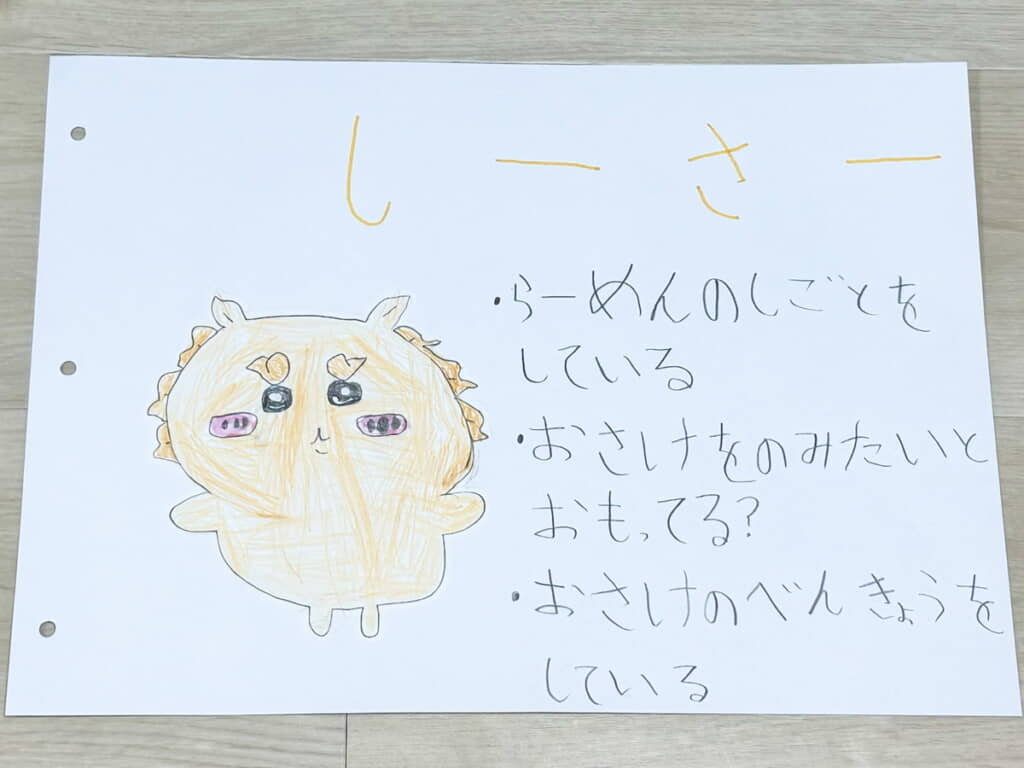 しーさー
・らーめんのしごとを
している
・おさけをのみたいと
おもってる?
・おさけのべんきょうを
している